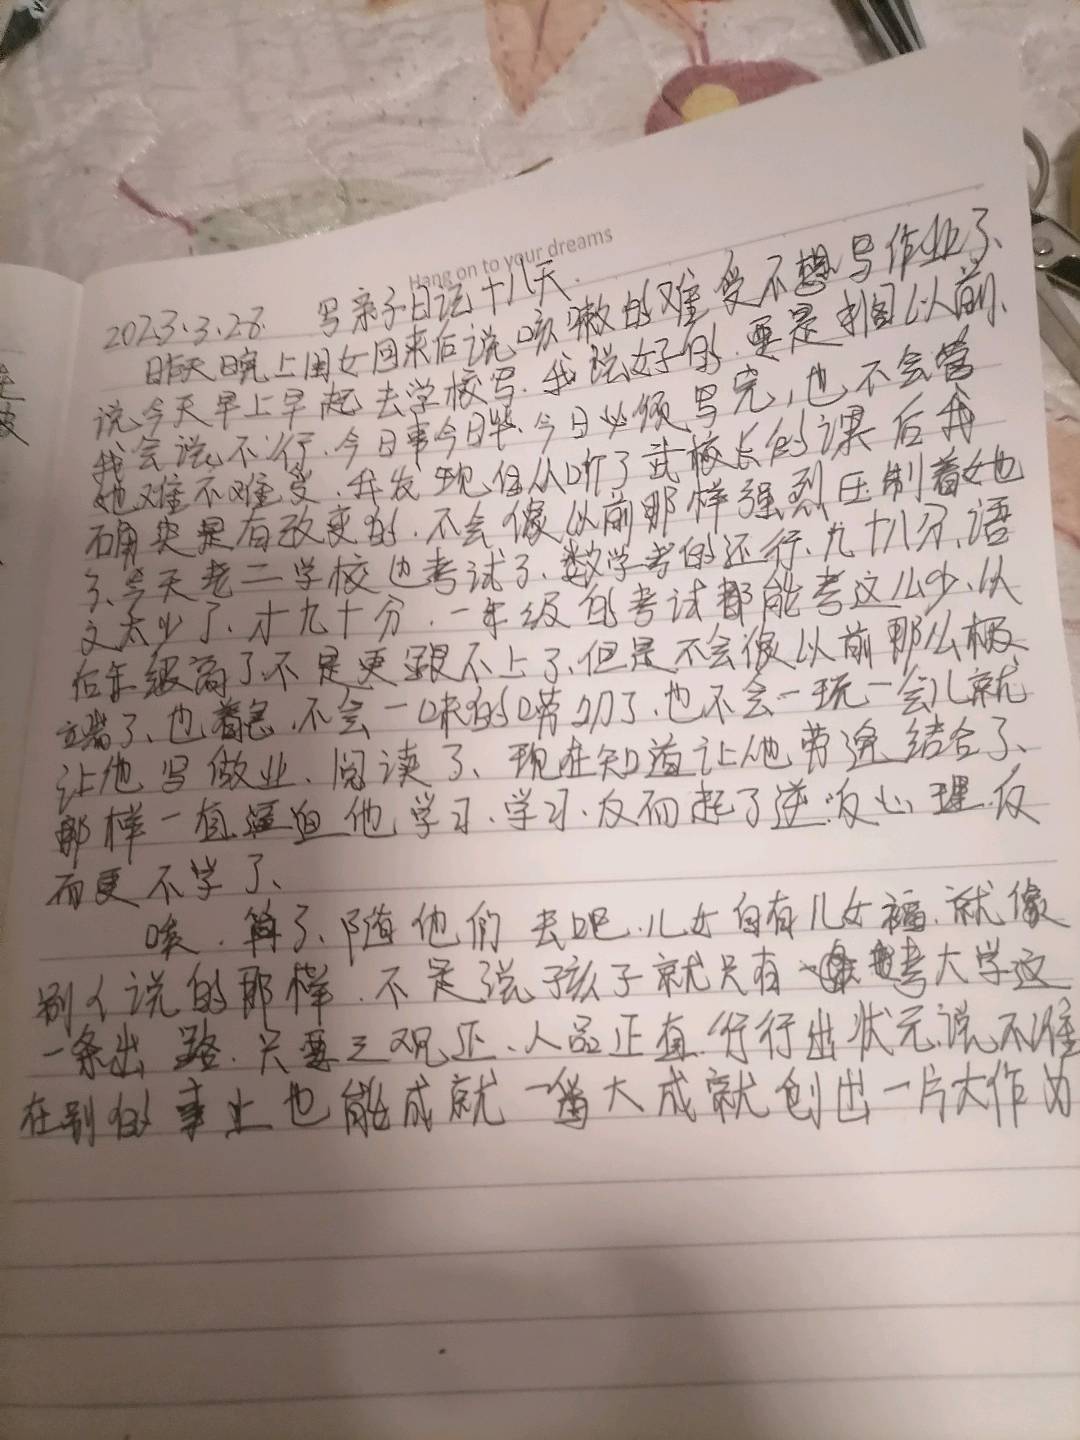 Hang on to your dreams
2023.3.28 写亲子日记十八天.
昨天晚上闺女回来后说咳嗽的难受不想写作业了、
说今天早上早起去学校写.我说好的.要是搁以前、
我会说、不行.今日事今日毕.今日必须写完,也不会管
她难不难受.我发现自从听了武校长的课后我
确实是有改变的.不会像以前那样强烈压制着她
了、今天老二学校也考试了、数学考的还行、九十八分、语
文太少了、才九十分.一年级的考试都能考这么少、以
后年级高了、不是更跟不上了、但是不会像以前那么极
端了、也着急.不会一味的唠叨了.也不会一玩一会儿就
让他写做业、阅读了、现在知道让他劳逸结合了、
那样一直逼迫他学习、学习.反而起了逆反心理.反
而更不学了、
唉.算了、随他们去吧.儿女自有儿女福.就像
别人说的那样.不是说孩子就只有考大学这
一条出路.只要三观正、人品正直.行行出状元.说不准
在别的事上也能成就一番大成就创出一片大作为